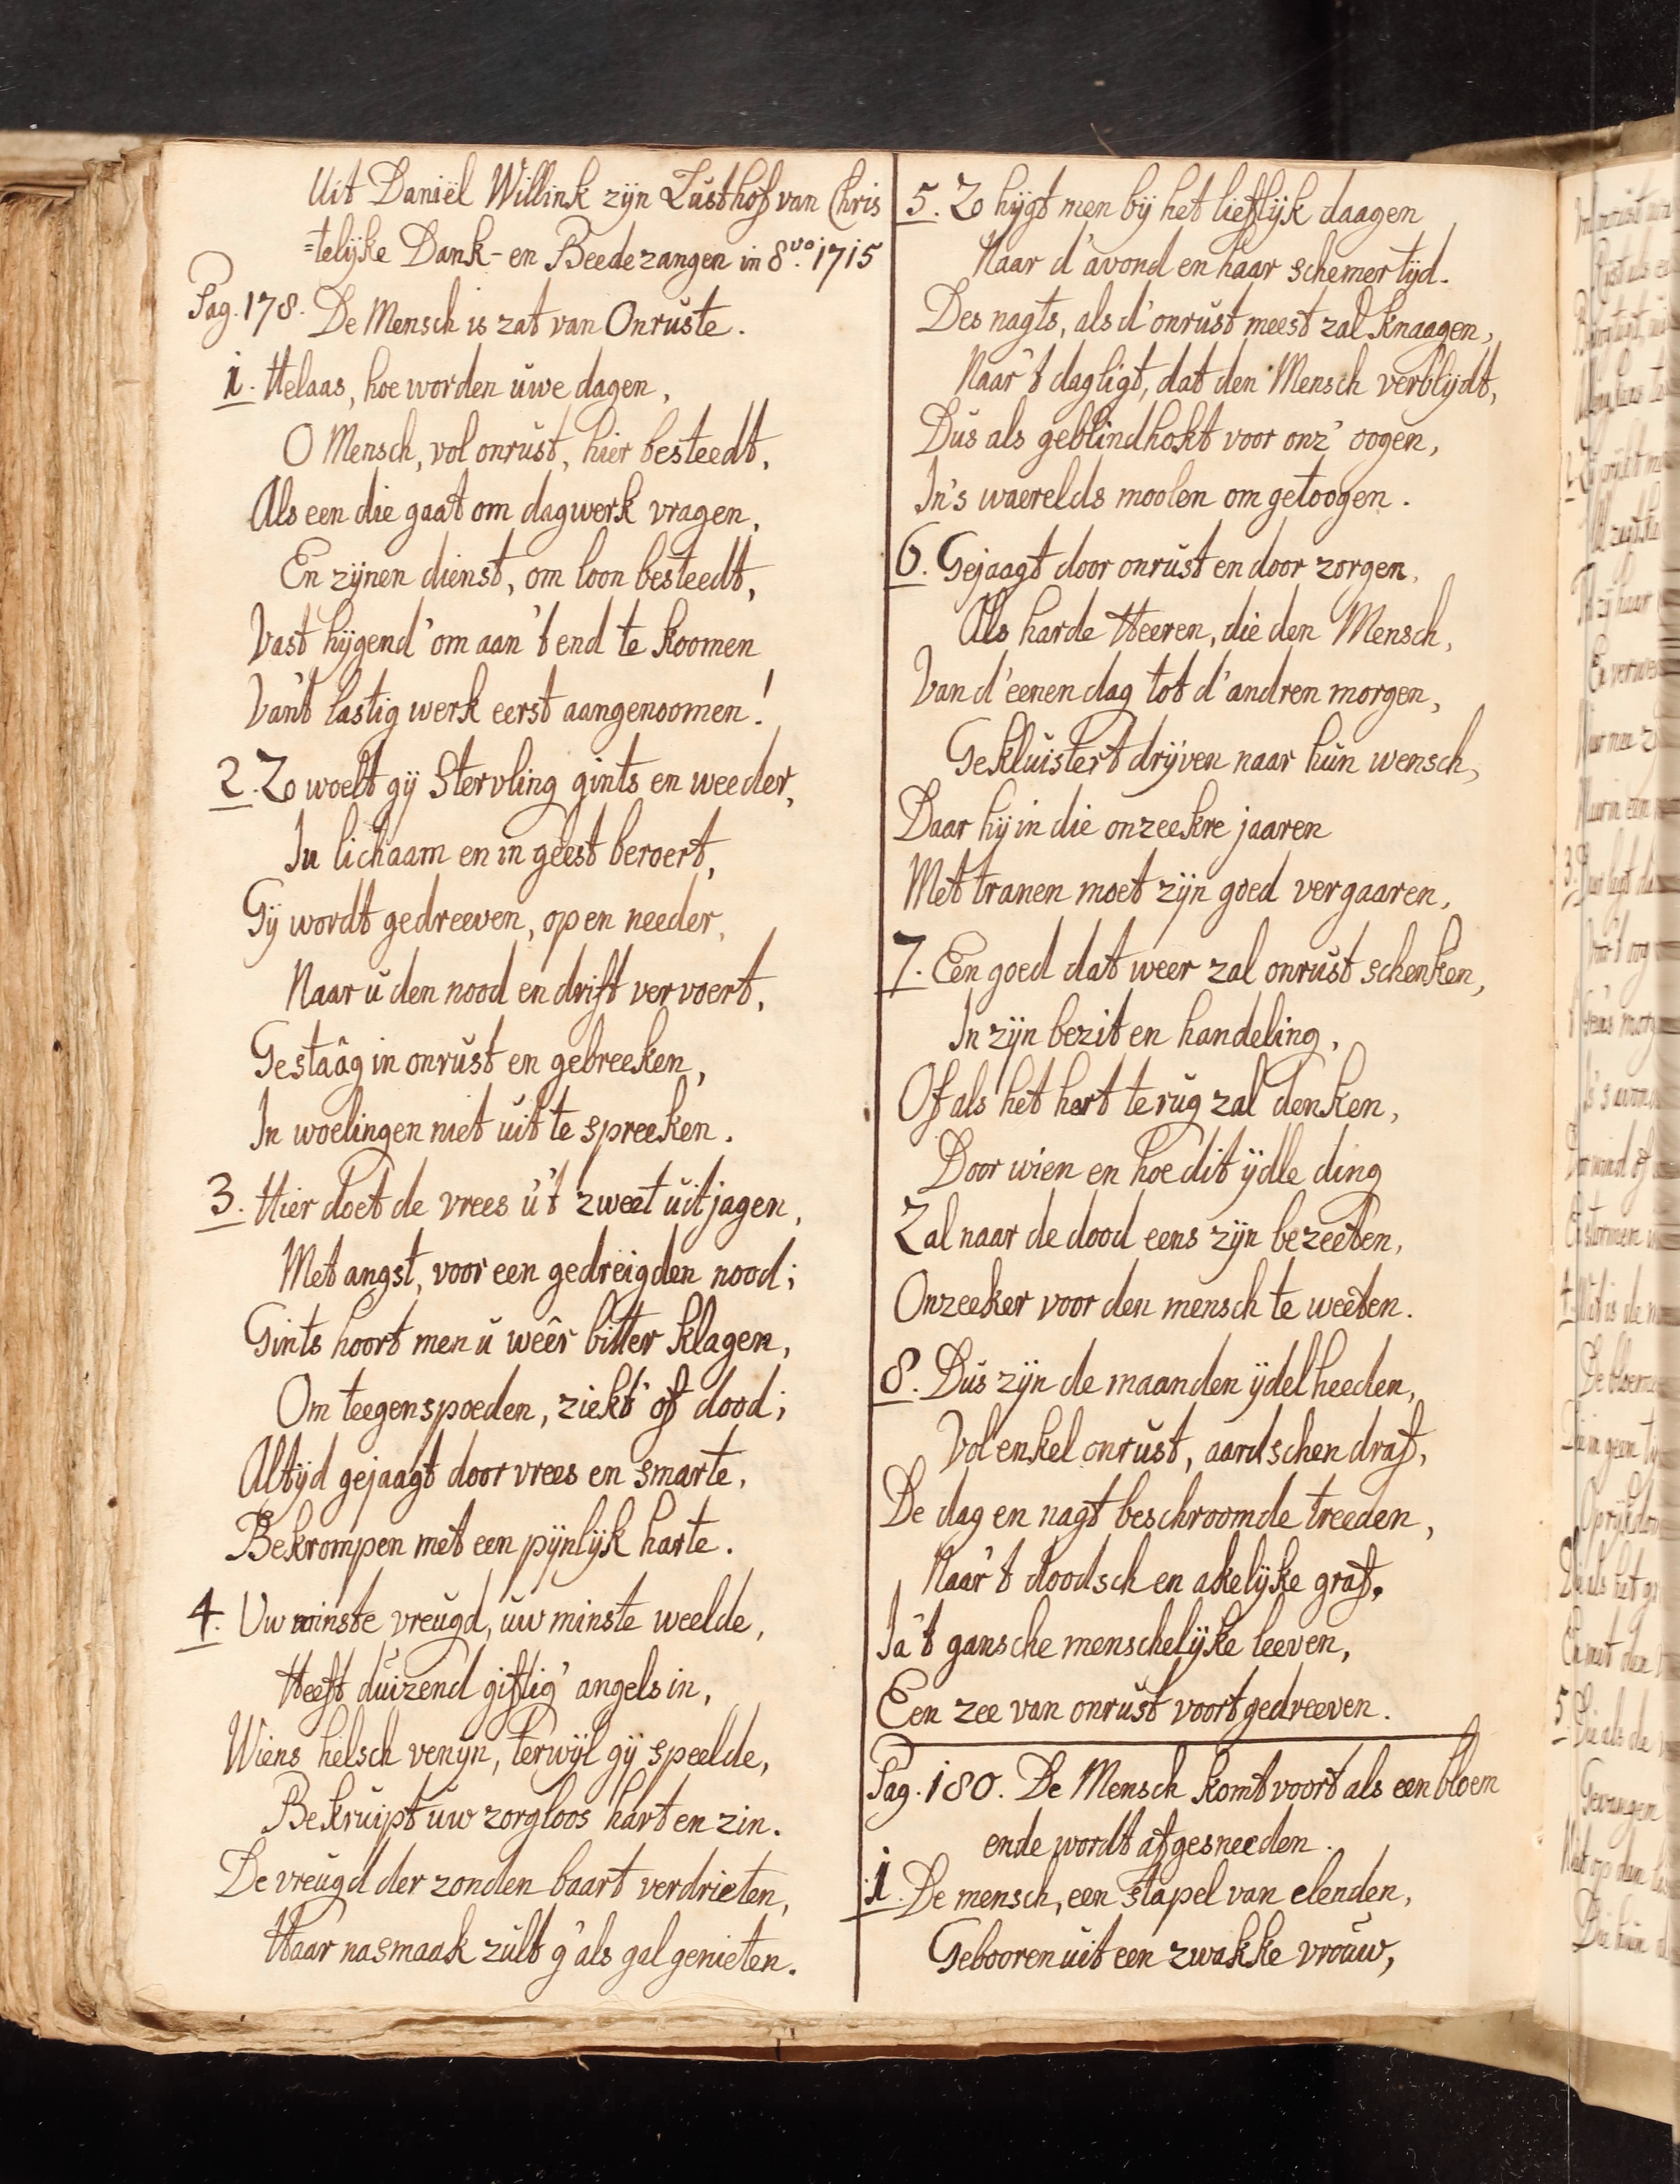 Uit Daniël Willink zijn Lusthof van Chris
=telijke Dank- en Beede zangen in 8vo. 1715
Pag. 178. De Mensch is zat van Onruste.
1. Helaas, hoe worden uwe dagen,
O Mensch, vol onrust, hier besteedt,
Als een die gaat om dagwerk vragen,
En zijnen dienst, om loon besteedt,
Vast hijgend' om aan 't end te koomen
Van't lastig werk eerst aangenoomen!
2. Zo woelt gij Stervling gints en weeder,
In lichaam en in geest beroert,
Gij wordt gedreeven, op en needer,
Naar u den nood en drift vervoert,
Gestaâg in onrust en gebreeken,
In woelingen niet uit te spreeken.
3. Hier doet de vrees u 't zweet uitjagen,
Met angst, voor een gedreigden nood;
Gints hoort men u weêr bitter klagen,
Om teegenspoeden, ziekt' of dood;
Altijd gejaagt door vrees en smarte,
Bekrompen met een pijnlijk harte.
4. Uw minste vreugd, uw minste weelde,
Heeft duizend giftig' angels in,
Wiens helsch venijn, terwijl gij speelde,
Bekruipt uw zorgloos hart en zin.
De vreugd der zonden baart verdrieten,
Haar nasmaak zult g'als gal genieten.
5. Zo hijgt men bij het lieflijk daagen
Naar d'avond en haar schemertijd.
Des nagts, als d'onrust meest zal knaagen,
Naar't dagligt, dat den Mensch verblijdt,
Dus als geblindhokt voor onz' oogen,
In's waerelds moolen om getoogen.
6. Gejaagt door onrust en door zorgen,
Als harde Heeren, die den Mensch,
Van d'eenen dag tot d'andren morgen,
Gekluistert drijven naar hun wensch,
Daar hij in die onzeekre jaaren
Met tranen moet zijn goed vergaaren,
7. Een goed dat weer zal onrust schenken,
In zijn bezit en handeling,
Of als het hart te rug zal denken,
Door wien en hoe dit ijdle ding
Zal naar de dood eens zijn bezeeten,
Onzeeker voor den mensch te weeten.
8. Dus zijn de maanden ijdelheeden,
Vol enkel onrust, aardschen draf,
De dag en nagt beschroomde treeden,
Naar't doodsch en akelijke graf,
Ja 't gansche menschelijke leeven,
Een zee van onrust voortgedreeven.
Pag. 180. De Mensch komt voort als een bloem
ende wordt afgesneeden.
1. De mensch, een stapel van elenden,
Gebooren uit een zwakke vrouw,